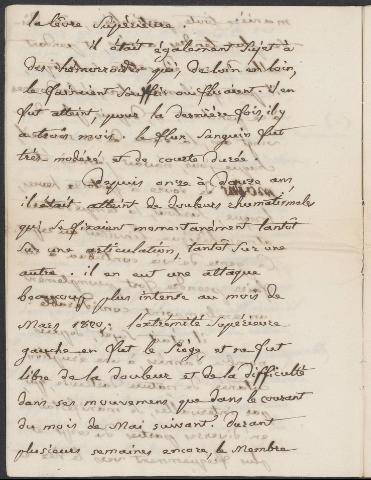 la lèvre supérieure.
il était également sujet à
des hémorroïdes qui, de loin en loin,
le faisaient souffrir ou fluaient. il en
fut atteint, pour la dernière fois, il y
a trois mois. le flux sanguin fut
très modéré et de courte durée.
Depuis onze à douze ans
il était atteint de douleurs rhumatismales
qui se fixaient momentanément tantôt
sur une articulation, tantôt sur une
autre. il en eut une attaque
beaucoup plus intense au mois de
Mars 1820. l'extrémité supérieure
gauche en fut le siège et ne fut
libre de la douleur et de la difficulté
dans ses mouvemens que dans le courant
du mois de Mai suivant. durant
plusieurs semaines encore, le Membre